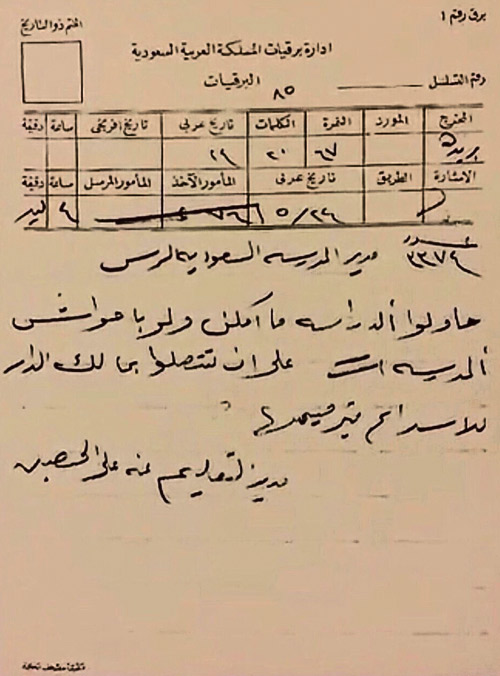 برق رقم ١
الختم ذو التاريخ
ادارة برقيات المملكة العربية السعودية
رقم التسلسل
البرقيات
٨٥
المخرج المورد النمرة الكلمات تاريخ عربي تاريخ افرنجي ساعة دقيقة
بريدة ٦٧ ٢٠ ٢٩
الاشارة الطريق تاريخ عربي المأمور الآخذ المأمور المرسل ساعة دقيقة
٥/٢٤ ٤
عدد ٣٣٧٤ مدير المدرسه السعوديه بالرس
حاولوا الدراسه ما أمكن ولو با حواش
المدرسه على ان تتصلوا بمالك الدار
للاسراع بترميمها
مدير التعليم عنه علي الحصين